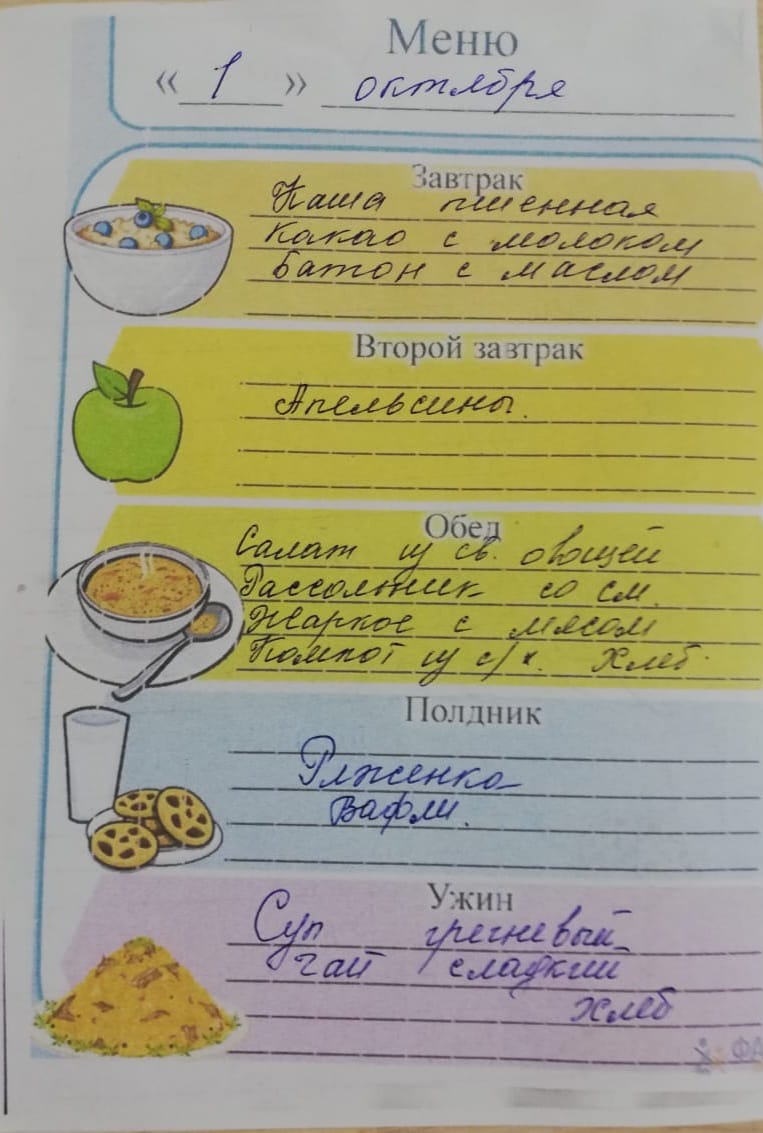 Меню
« 1 » октября
Завтрак
Каша пшенная
Какао с молоком
Батон с маслом
Второй завтрак
Апельсины.
Обед
Салат из св. овощей
Рассольник со см.
Жаркое с мясом
Компот из с/х. Хлеб.
Полдник
Ряженка
Вафли.
Ужин
Суп гречневый
Чай сладкий
Хлеб
ФА